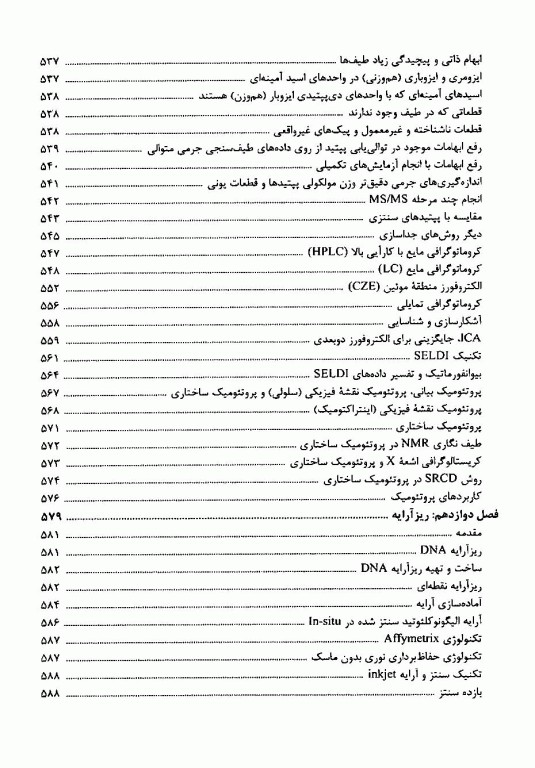 ابهام ذاتی و پیچیدگی زیاد طیف‌ها ... ۵۳۷
ایزومری و ایزوباری (هم‌وزنی) در واحدهای اسید آمینه‌ای ... ۵۳۷
اسیدهای آمینه‌ای که با واحدهای دی‌پپتیدی ایزوبار (هم‌وزن) هستند ... ۵۳۸
قطعاتی که در طیف وجود ندارند ... ۵۳۸
قطعات ناشناخته و غیرمعمول و پیک‌های غیرواقعی ... ۵۳۸
رفع ابهامات موجود در توالی‌یابی پپتید از روی داده‌های طیف‌سنجی جرمی متوالی ... ۵۳۹
رفع ابهامات با انجام آزمایش‌های تکمیلی ... ۵۴۰
اندازه‌گیری‌های جرمی دقیق‌تر وزن مولکولی پپتیدها و قطعات یونی ... ۵۴۱
انجام چند مرحله MS/MS ... ۵۴۲
مقایسه با پپتیدهای سنتزی ... ۵۴۳
دیگر روش‌های جداسازی ... ۵۴۵
کروماتوگرافی مایع با کارآیی بالا (HPLC) ... ۵۴۷
کروماتوگرافی مایع (LC) ... ۵۴۸
الکتروفورز منطقهٔ موئین (CZE) ... ۵۵۲
کروماتوگرافی تمایلی ... ۵۵۶
آشکارسازی و شناسایی ... ۵۵۸
ICA، جایگزینی برای الکتروفورز دوبعدی ... ۵۵۹
تکنیک SELDI ... ۵۶۱
بیوانفورماتیک و تفسیر داده‌های SELDI ... ۵۶۴
پروتئومیک بیانی، پروتئومیک نقشهٔ فیزیکی (سلولی) و پروتئومیک ساختاری ... ۵۶۷
پروتئومیک نقشهٔ فیزیکی (اینتراکتومیک) ... ۵۶۸
پروتئومیک ساختاری ... ۵۷۱
طیف نگاری NMR در پروتئومیک ساختاری ... ۵۷۲
کریستالوگرافی اشعهٔ X و پروتئومیک ساختاری ... ۵۷۳
روش SRCD در پروتئومیک ساختاری ... ۵۷۴
کاربردهای پروتئومیک ... ۵۷۶
فصل دوازدهم: ریزآرایه ... ۵۷۹
مقدمه ... ۵۸۱
ریزآرایه DNA ... ۵۸۱
ساخت و تهیه ریزآرایه DNA ... ۵۸۲
ریزآرایه نقطه‌ای ... ۵۸۲
آماده‌سازی آرایه ... ۵۸۴
آرایه الیگونوکلئوتید سنتز شده در In-situ ... ۵۸۶
تکنولوژی Affymetrix ... ۵۸۷
تکنولوژی حفاظ‌برداری نوری بدون ماسک ... ۵۸۷
تکنیک سنتز و آرایه inkjet ... ۵۸۸
بازده سنتز ... ۵۸۸